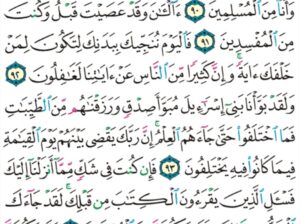 وَأَنَا۠ مِنَ ٱلْمُسْلِمِينَ ۝٩٠ ءَآلْـَٰٔنَ وَقَدْ عَصَيْتَ قَبْلُ وَكُنتَ
مِنَ ٱلْمُفْسِدِينَ ۝٩١ فَٱلْيَوْمَ نُنَجِّيكَ بِبَدَنِكَ لِتَكُونَ لِمَنْ
خَلْفَكَ ءَايَةً ۚ وَإِنَّ كَثِيرًا مِّنَ ٱلنَّاسِ عَنْ ءَايَٰتِنَا لَغَٰفِلُونَ ۝٩٢
وَلَقَدْ بَوَّأْنَا بَنِىٓ إِسْرَٰٓءِيلَ مُبَوَّأَ صِدْقٍ وَرَزَقْنَٰهُم مِّنَ ٱلطَّيِّبَٰتِ
فَمَا ٱخْتَلَفُوا۟ حَتَّىٰ جَآءَهُمُ ٱلْعِلْمُ ۚ إِنَّ رَبَّكَ يَقْضِى بَيْنَهُمْ يَوْمَ ٱلْقِيَٰمَةِ
فِيمَا كَانُوا۟ فِيهِ يَخْتَلِفُونَ ۝٩٣ فَإِن كُنتَ فِى شَكٍّ مِّمَّآ أَنزَلْنَآ إِلَيْكَ
فَسْـَٔلِ ٱلَّذِينَ يَقْرَءُونَ ٱلْكِتَٰبَ مِن قَبْلِكَ ۚ لَقَدْ جَآءَكَ